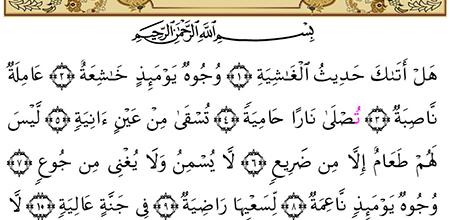 بِسْمِ اللَّهِ الرَّحْمَٰنِ الرَّحِيمِ
هَلْ أَتَىٰكَ حَدِيثُ الْغَٰشِيَةِ ﴿١﴾ وُجُوهٌ يَوْمَئِذٍ خَٰشِعَةٌ ﴿٢﴾ عَامِلَةٌ
نَّاصِبَةٌ ﴿٣﴾ تُصْلَىٰ نَارًا حَامِيَةً ﴿٤﴾ تُسْقَىٰ مِنْ عَيْنٍ ءَانِيَةٍ ﴿٥﴾ لَّيْسَ
لَهُمْ طَعَامٌ إِلَّا مِن ضَرِيعٍ ﴿٦﴾ لَّا يُسْمِنُ وَلَا يُغْنِى مِن جُوعٍ ﴿٧﴾
وُجُوهٌ يَوْمَئِذٍ نَّاعِمَةٌ ﴿٨﴾ لِّسَعْيِهَا رَاضِيَةٌ ﴿٩﴾ فِى جَنَّةٍ عَالِيَةٍ ﴿١٠﴾ لَّا